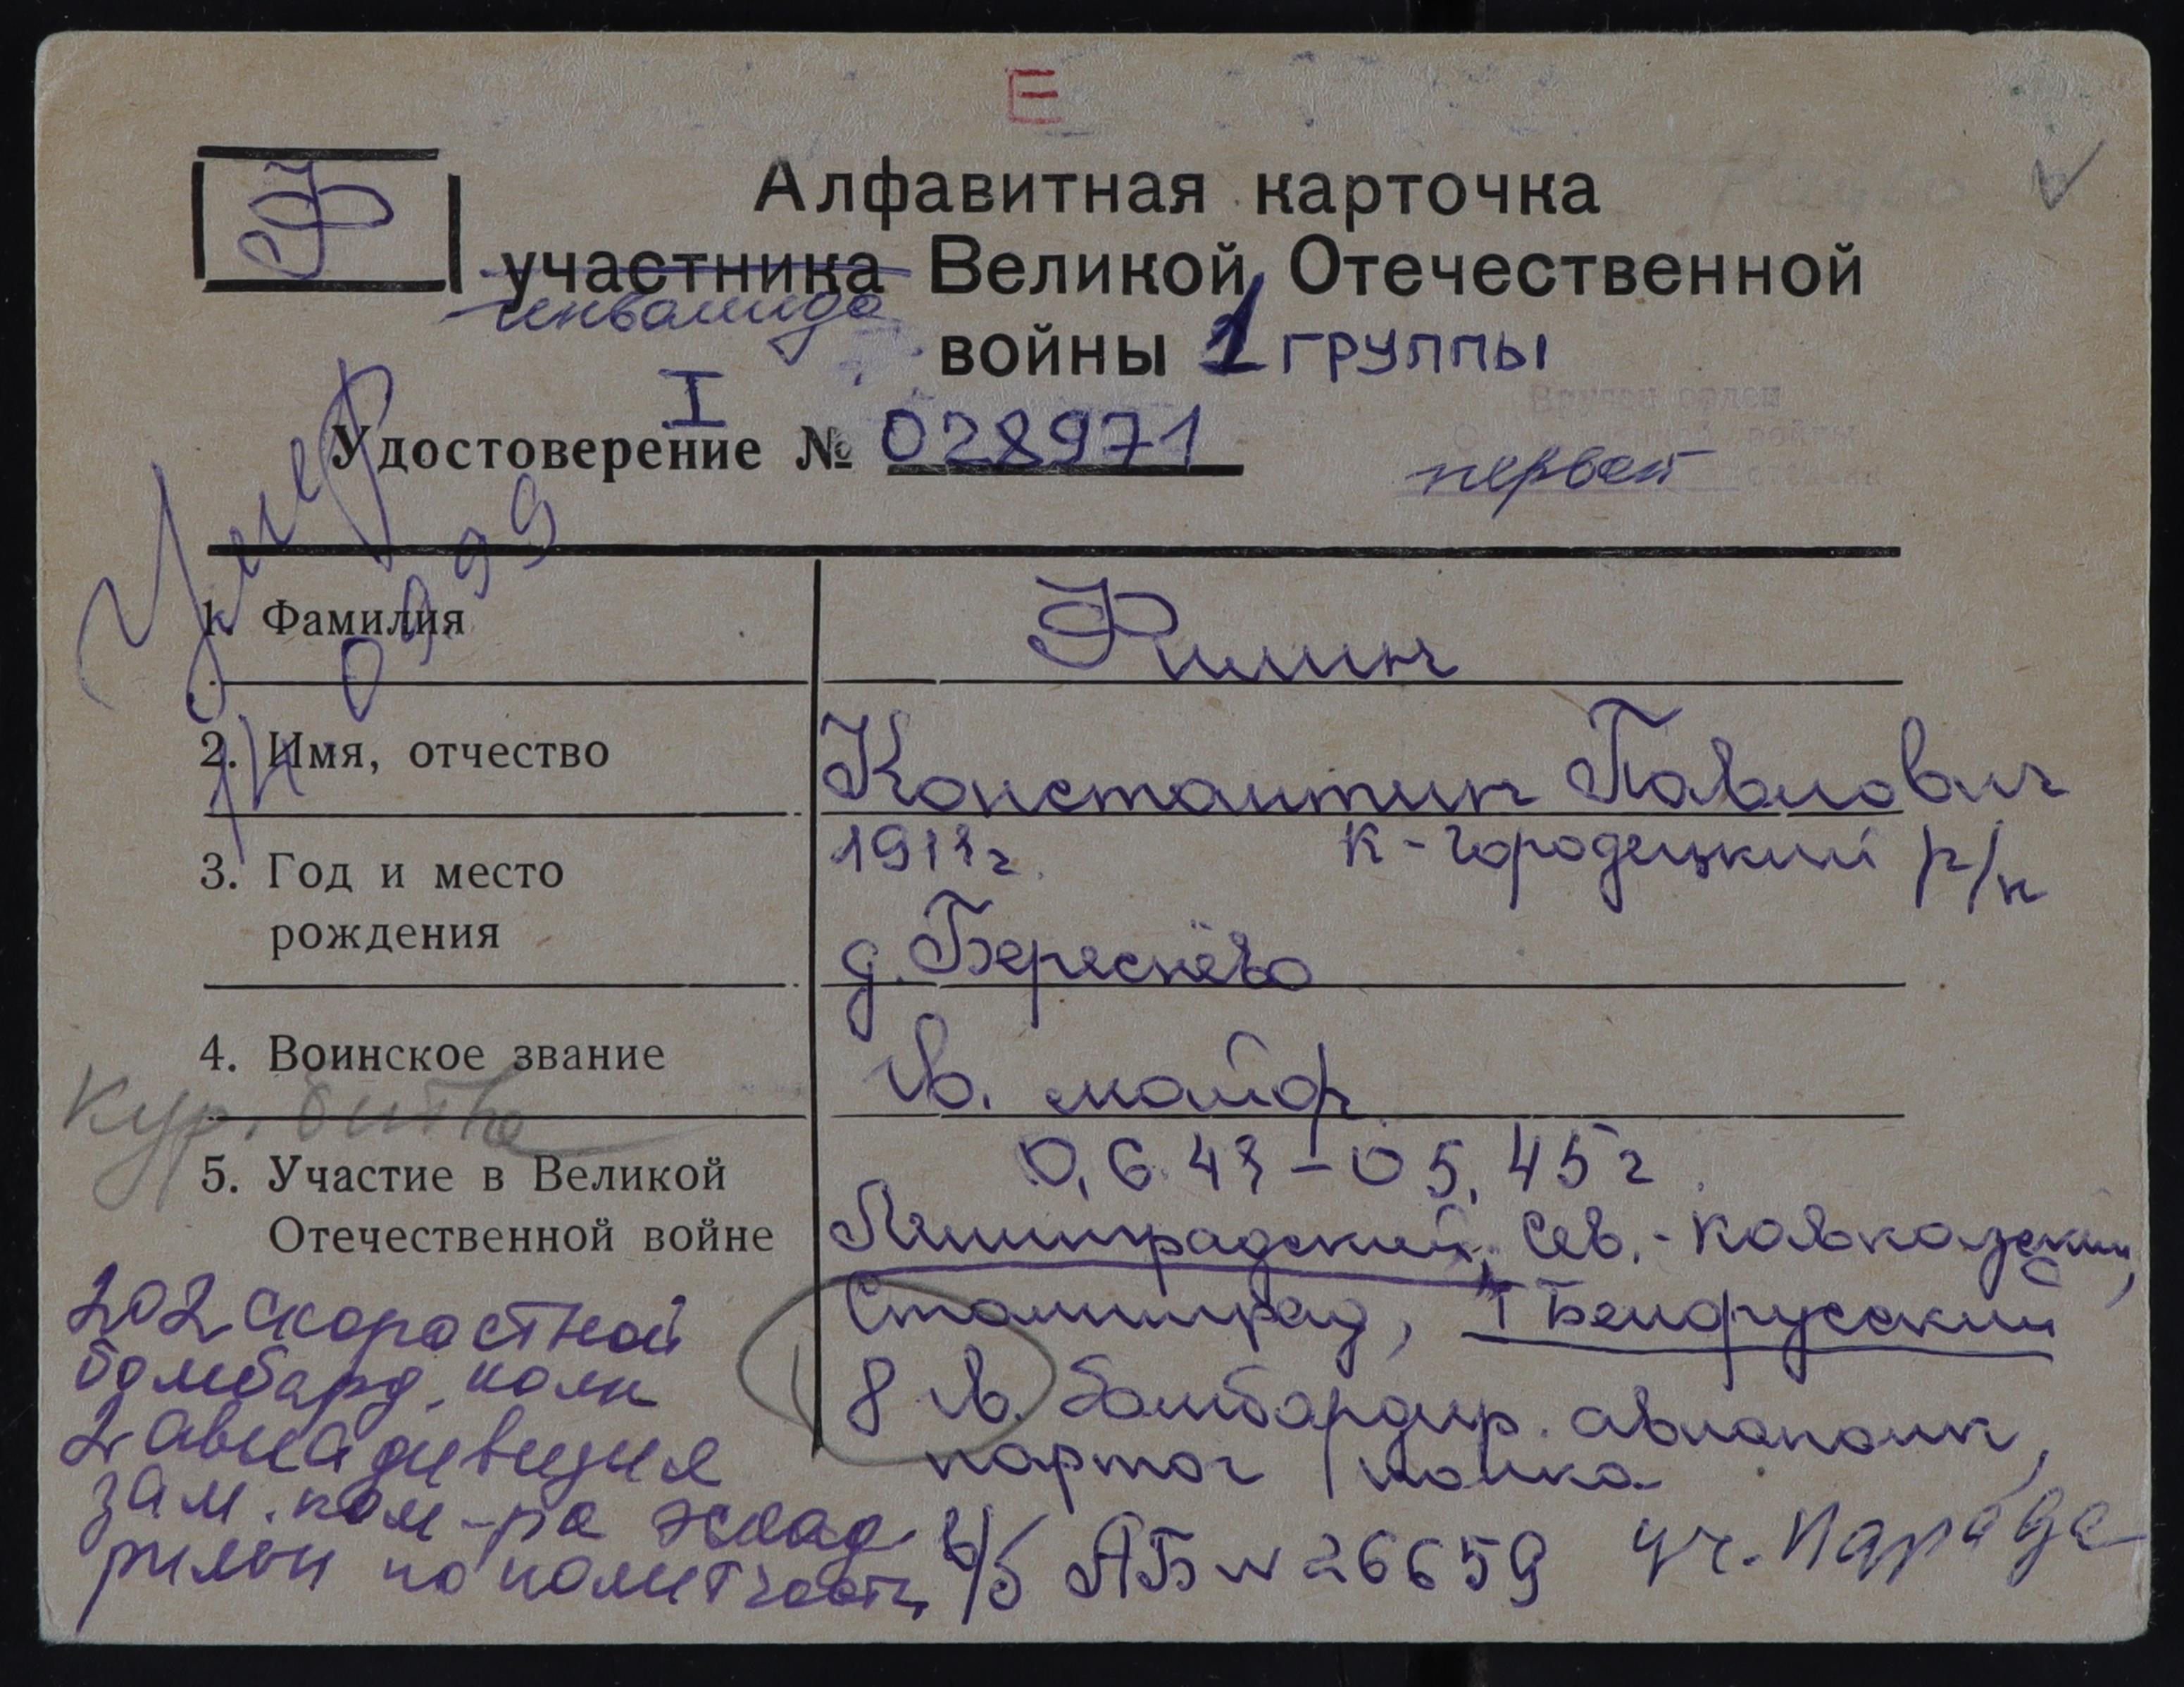 Е
Ф
Алфавитная карточка
участника Великой Отечественной
инвалида
войны 1 группы
I
Удостоверение № 028971
Вручен орден
Отечественной войны
первой степени
Умер
09.99
1. Фамилия
Филин
2. Имя, отчество
Константин Павлович
3. Год и место
рождения
1911г. К-Городецкий р/н
д. Береснёво
4. Воинское звание
гв. майор
Кур. битва
5. Участие в Великой
Отечественной войне
0,6.43-05.45г.
Ленинградский, Сев.-Кавказский,
Сталинград, I Белорусский
8 гв. бомбардир. авиаполк,
парторг полка
в/б АБ № 26659 уч. парада
202 скоростной
бомбард. полк
2 авиадивизия
зам. ком-ра эскад
рильи по политчасти